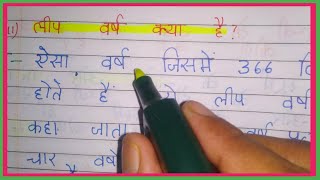 ii) लीप वर्ष क्या है?
ऐसा वर्ष जिसमें 366
होते हैं लीप वर्ष
कहा जाता
चार वर्षों